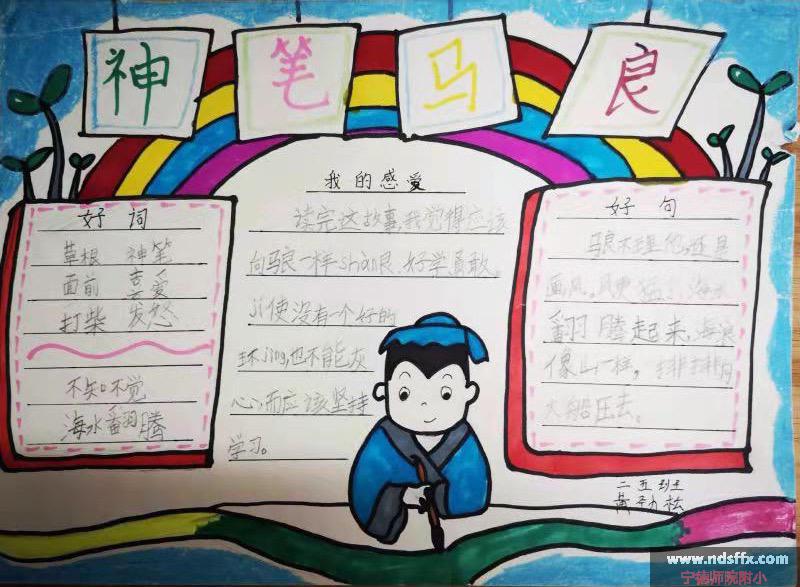 神笔马良
好词
草根 神笔
面前 喜爱
打柴 发愁
不知不觉
海水翻腾
我的感爱
读完这故事,我觉得应该
向马良一样shan良、好学勇敢。
jí使没有一个好的
环jing,也不能灰
心,而应该坚持
学习。
好句
马良不理他,还是
画风,风更猛,海水
翻腾起来,海浪
像山一样,排排向
大船压去。
二五班
黄劲松
www.ndsffx.com
宁德师院附小